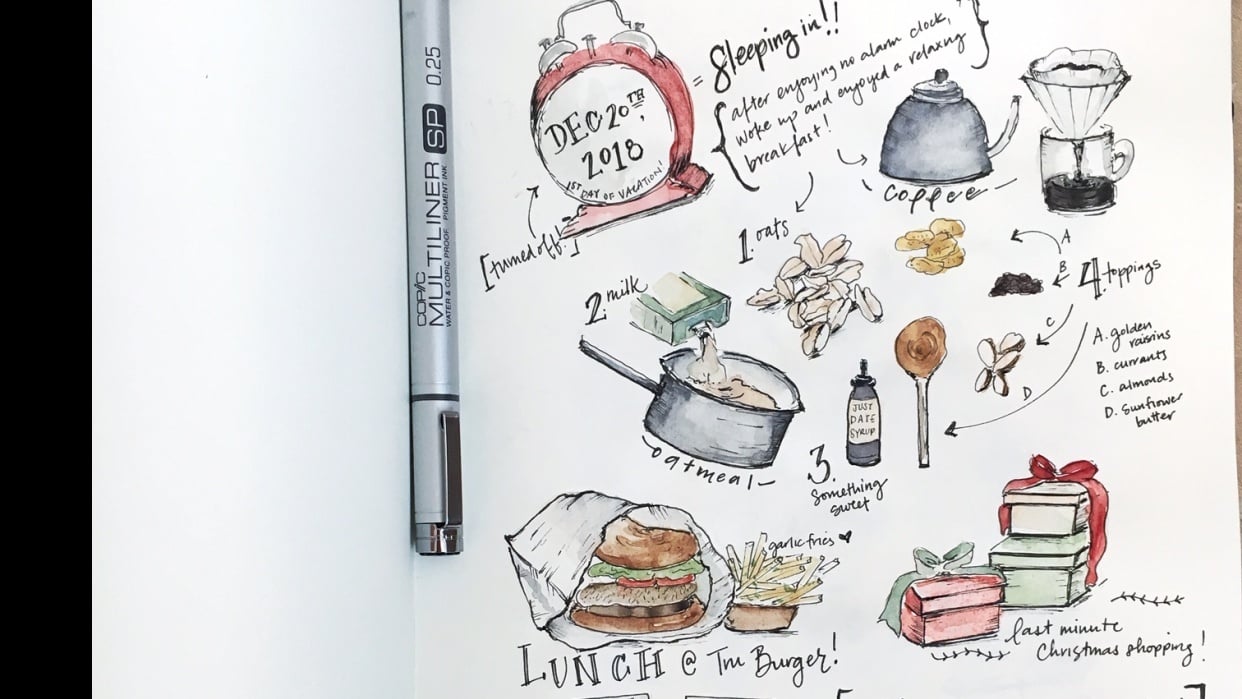 COPIC MULTILINER SP 0.25
WATER & COPIC PROOF PIGMENT INK
DEC 20TH,
2018
1ST DAY OF VACATION!
[turned off!]
= Sleeping in!!
{after enjoying no alarm clock,
woke up and enjoyed a relaxing
breakfast!}
coffee
1. oats
2. milk
oatmeal
JUST
DATE
SYRUP
3.
something
sweet
A
B
C
D
4. toppings
A. golden
raisins
B. currants
C. almonds
D. sunflower
butter
garlic fries
LUNCH @ Tru Burger!
last minute
Christmas shopping!